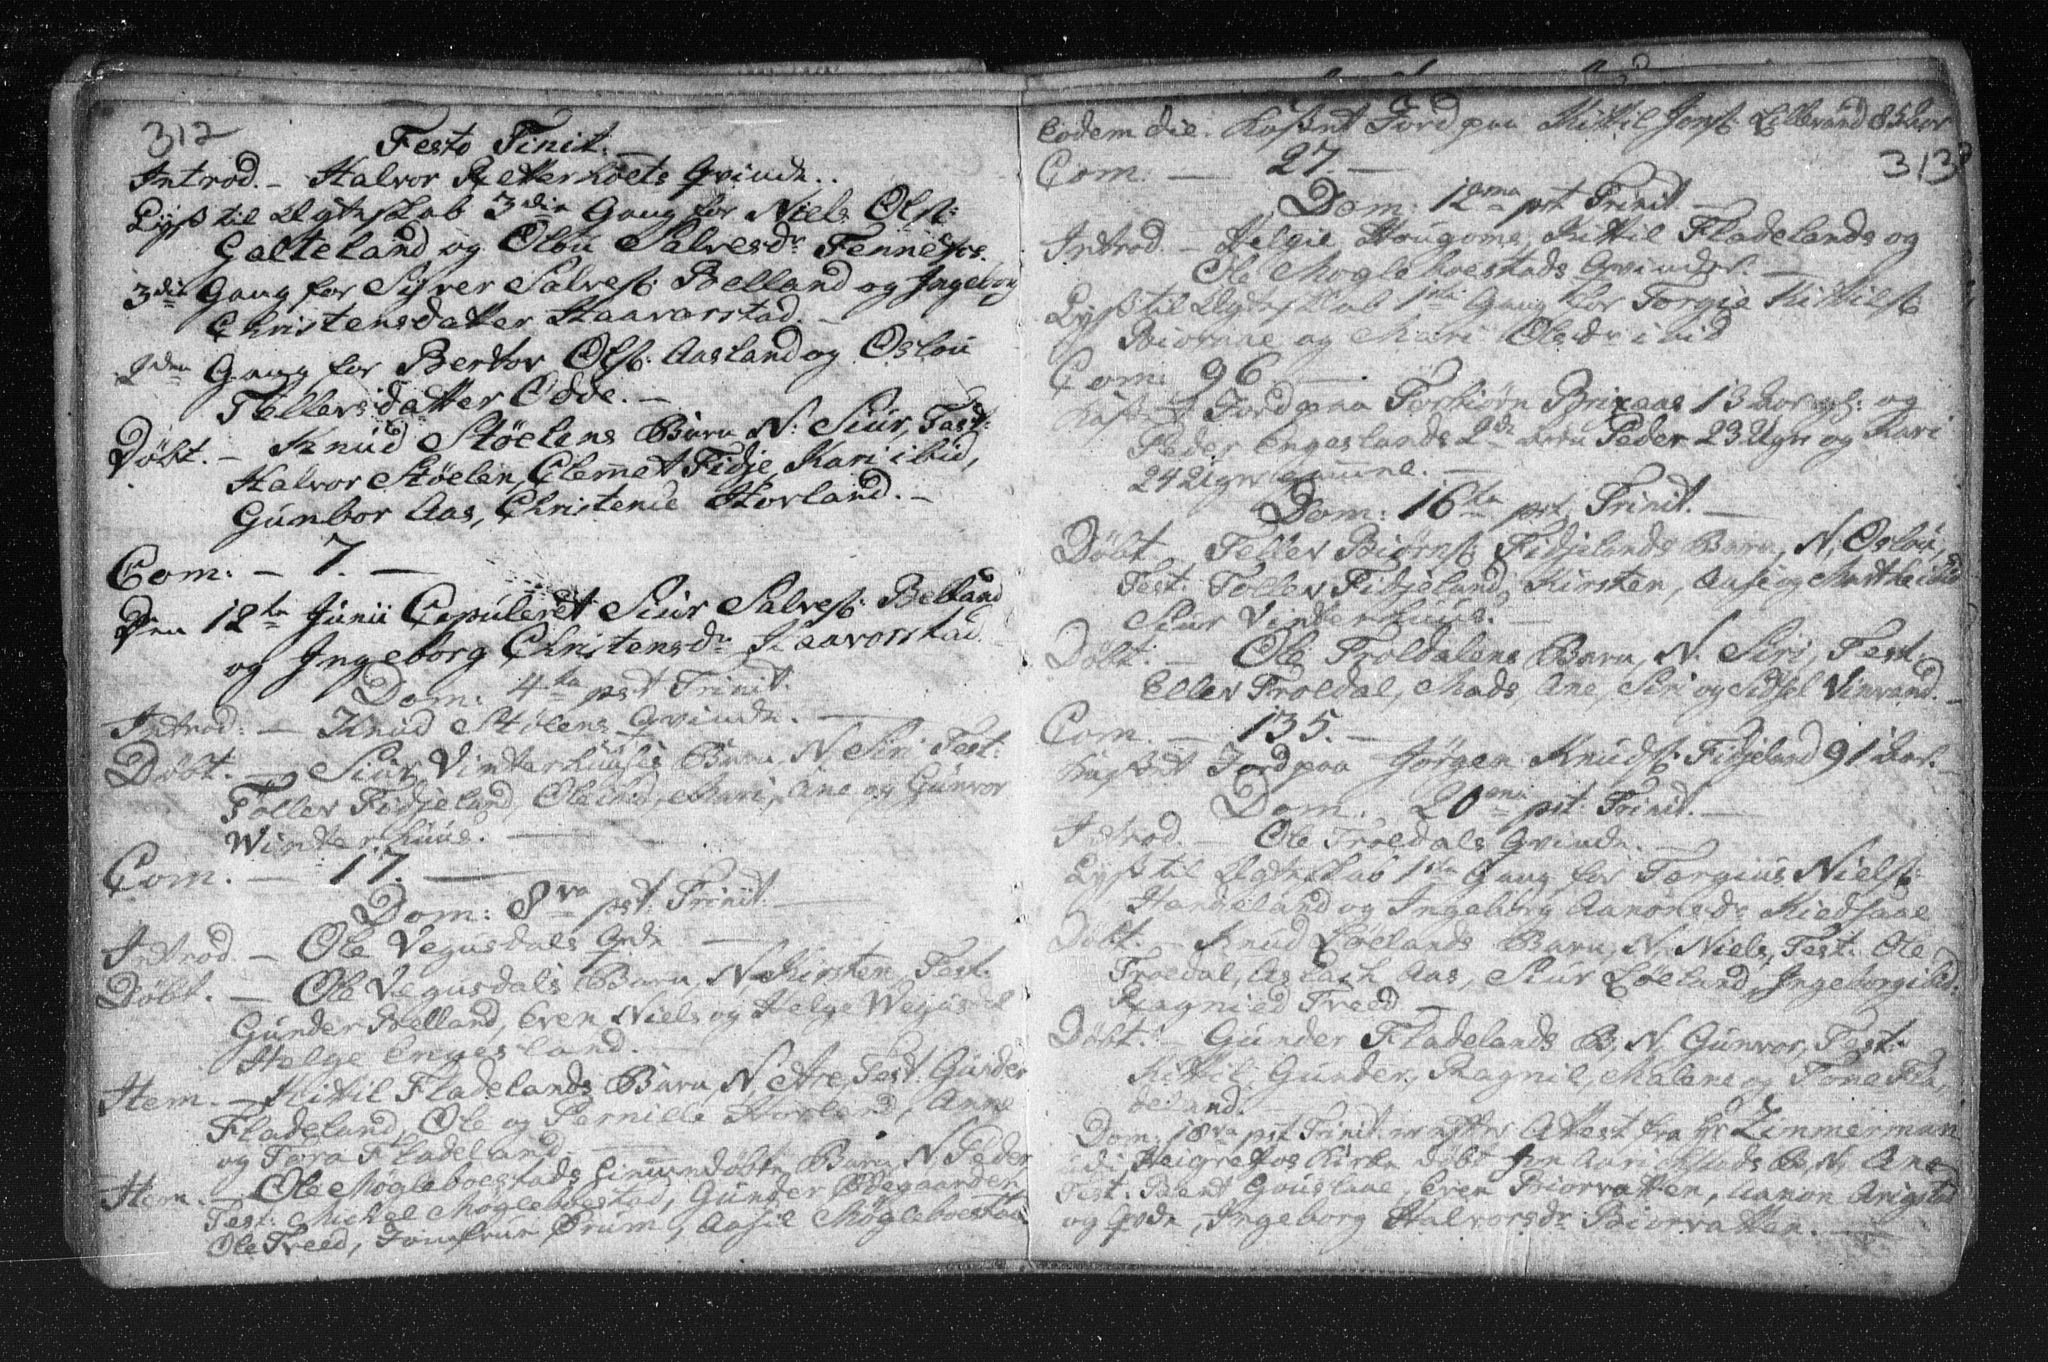 312
Festo Tinit.
Introd. - Halvor Retterholts Qvinde.
Lyst til Ægteskab 3die Gang for Niels Ols:
Galteland og Olou Salvesdr Fennefos.
3die Gang for Syver Salves: Belland og Ingeborg
Christensdatter Haavorstad. -
2den Gang for Bertor Ols: Aasland og Oslou
Tellersdatter Odde. -
Döbt. - Knud Stöelens Barn N: Siur, Test:
Halvor Stöelen, Clemet Fidje, Kari ibid,
Gunbor Aas, Christence Horland. -
Com: - 7. -
Den 12te Junii Copuleret Siur Salves: Belland
og Ingeborg Christensdr Haavorstad
Dom: 4ta pst Trinit:
Introd: - Knud Stölens Qvinde. -
Döbt. - Siur Vinterhuuses Barn N. Siri, Test:
Toller Fidjeland, Ole ibid, Mari, Ane og Gunvor
Winterhuus. -
Com. - 17. -
Dom: 8va pst Trinit: -
Introd. - Ole Vegusdals Qvde -
Döbt. - Ole Vegusdals Barn, N. Kirsten, Test:
Gunder Belland, Even Niels og Helge Wegusdal
Helge Engesland. -
Item. - Kittil Fladelands Barn, N. Are, Test: Gunder
Fladeland, Ole og Pernille Horland, Anne
og Tora Fladeland. -
Item. - Ole Mögleboestads Barn N. Peder
Test: Mickel Mögleboestad, Gunder Ödegaarden
Ole Treed, Jomfrue Örum, Aasil Mögleboestad
Eodem die. Kastet Jord paa Kittil Jons: Lillevand 85 Aar
313
Com. - 27. -
Dom: 12ma pst Trinit -
Introd. - Helgie Hougoms, Kittil Fladelands og
Ole Mögleboestads Qvinder. -
Lyst til Ægteskab 1ste Gang for Torgie Kittils:
Bioraae og Mari Olsdr ibid
Com: 96 -
Kastet Jord paa Torbiörn Brixaas 13 Aar og
Peder Engeslands 2de Peder 23 Uger og Kari
24 Uger gamle. -
Dom: 16ta pst Trinit. -
Döbt. - Teller Biörns: Fidjelands Barn, N. Oslou,
Test: Toller Fidjeland, Kirsten, Aase og Marthe ibid
Siur Vinterhuus. -
Döbt: - Ole Troldalens Barn, N. Siri, Test:
Eller Troldal, Mads, Ane, Siri og Sidsel Vinrand. -
Com. - 135. -
Kastet Jord paa Jörgen Knuds: Fidjeland 91 Aar. -
Dom. 20ma pst Trinit. -
Introd. - Ole Troldals Qvinde. -
Lyst til Ægteskab 1ste Gang for Torgius Niels:
Hanneland og Ingeborg Aanonsdr Kiedsaae
Döbt. - Knud Löelands Barn, N. Niels, Test: Ole
Troldal, Aslach Aas, Siur Löeland, Ingeborg ibid:
Ragnied Treed -
Döbt: - Gunder Fladelands B, N. Gunvor, Test:
Kittil, Gunder, Ragnil, Malene og Tone Fla,
deland. -
Dom: 18va pst Trinit: er efter Attest fra Hr Zimmerman
udi Heigrefos Kirke döbt Jon Aarickstads B, N. Ane
Test: Bent Gouslaae, Even Biorvatten, Aanon Arigstad
og Qvde, Ingeborg Halvorsdr Biorvatten. -